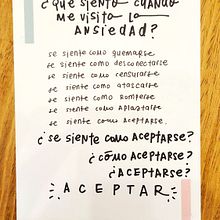 ¿QUÉ SIENTO CUANDO
ME VISITA LA
ANSIEDAD?
se siente como quemarse
se siente como desconectarse
se siente como censurarse
se siente como atascarse
se siente como romperse
se siente como aplastarse
se siente como ACEPTARSE.
¿se siente como ACEPTARSE?
¿CÓMO ACEPTARSE?
¿ACEPTARSE?
ACEPTAR